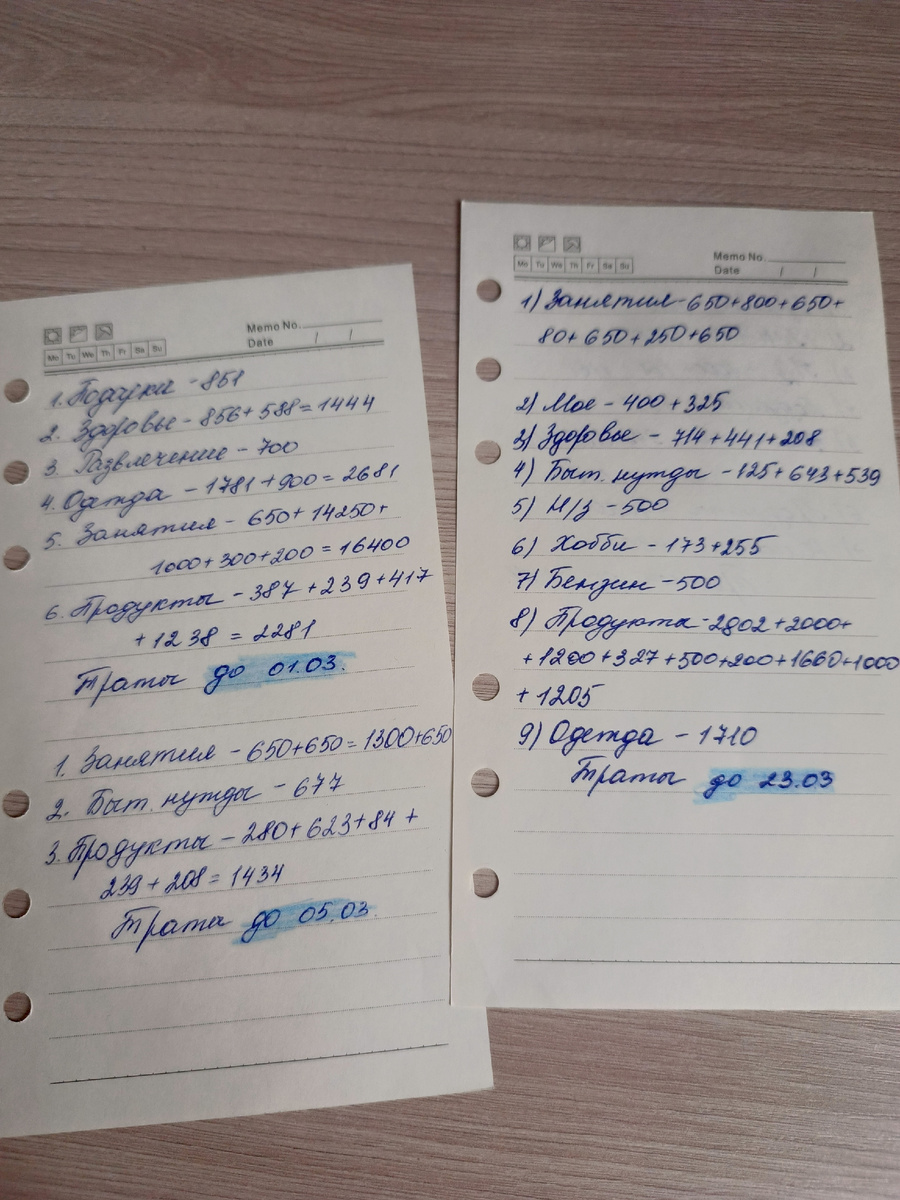 Memo No.
Date / /
Mo Tu We Th Fr Sa Su
1. Подарки - 851
2. Здоровье - 856 + 588 = 1444
3. Развлечение - 700
4. Одежда - 1781 + 900 = 2681
5. Занятия - 650 + 14250 +
1000 + 300 + 200 = 16400
6. Продукты - 387 + 239 + 417
+ 1238 = 2281
Траты до 01.03.
1. Занятия - 650 + 650 = 1300 + 650
2. Быт. нужды - 677
3. Продукты - 280 + 623 + 84 +
239 + 208 = 1434
Траты до 05.03.
Memo No.
Date / /
Mo Tu We Th Fr Sa Su
1) Занятия - 650 + 800 + 650 +
80 + 650 + 250 + 650
2) Мое - 400 + 325
3) Здоровье - 714 + 441 + 208
4) Быт. нужды - 125 + 643 + 539
5) Н/з - 500
6) Хобби - 173 + 255
7) Бензин - 500
8) Продукты - 2802 + 2000 +
+ 1200 + 327 + 500 + 200 + 1660 + 1000
+ 1205
9) Одежда - 1710
Траты до 23.03